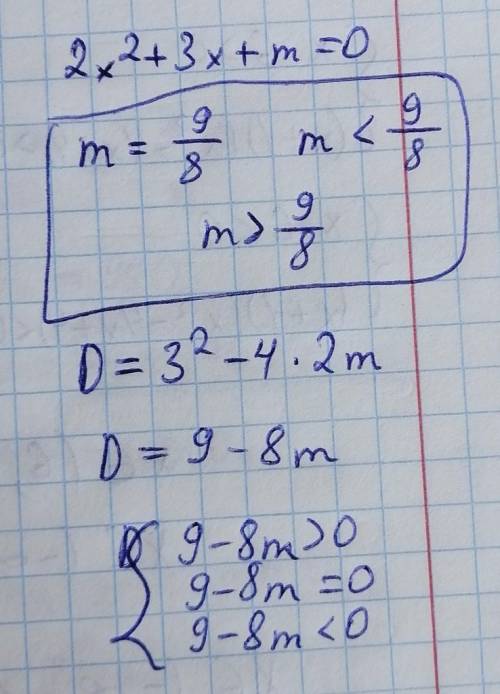 2x²+3x+m=0
m = 9/8 m < 9/8
m > 9/8
D = 3² - 4 · 2m
D = 9 - 8m
{ 9-8m>0
9-8m=0
9-8m<0